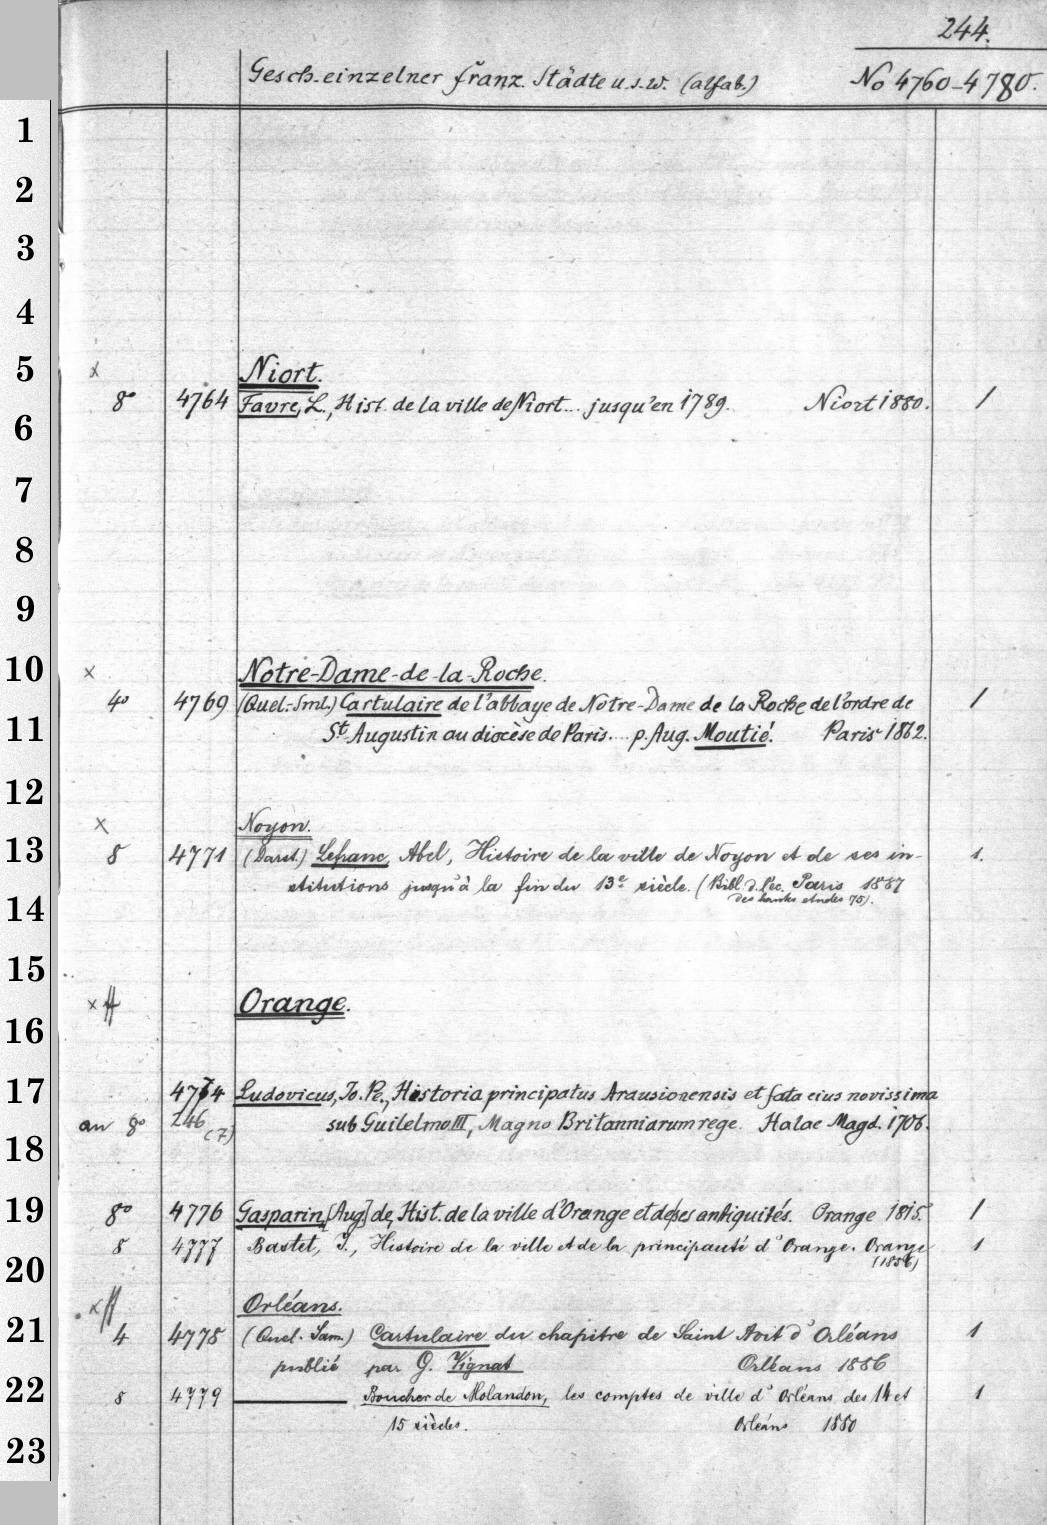 244.
Gesch. einzelner franz. Städte u.s.w. (alfab.) No 4760-4780.
1
2
3
4
5
x Niort.
8° 4764 Favre, L., Hist. de la ville de Niort... jusqu'en 1789. Niort 1880. 1
6
7
8
9
10 x Notre-Dame-de-la-Roche.
4° 4769 (Quel.-Sml.) Cartulaire de l'abbaye de Notre-Dame de la Roche de l'ordre de 1
11 St. Augustin au diocèse de Paris.... p. Aug. Moutié. Paris 1862.
12
x Noyon.
13 8 4771 (Darst.) Lefranc, Abel, Histoire de la ville de Noyon et de ses in- 1.
stitutions jusqu'à la fin du 13e siècle. (Bibl. d. l'ec. Paris 1887
des hautes etudes 75).
14
15
x Orange.
16
17 4774 Ludovicus, Jo. Pe., Historia principatus Arausionensis et fata eius novissima
an 8° 246 (7) sub Guilelmo III, Magno Britanniarum rege. Halae Magd. 1706.
18
19 8° 4776 Gasparin, [Aug] de, Hist. de la ville d'Orange et de ses antiquités. Orange 1815. 1
8 4777 Bastet, J., Histoire de la ville et de la principauté d'Orange. Orange 1
20 (1856)
x Orléans.
21 4 4778 (Quel. Sam.) Cartulaire du chapitre de Saint Avit d'Orléans 1
publié par G. Vignat Orléans 1886
22 8 4779 Boucher de Molandon, les comptes de ville d'Orléans des 14 et 1
15 siècles. Orleáns 1880
23